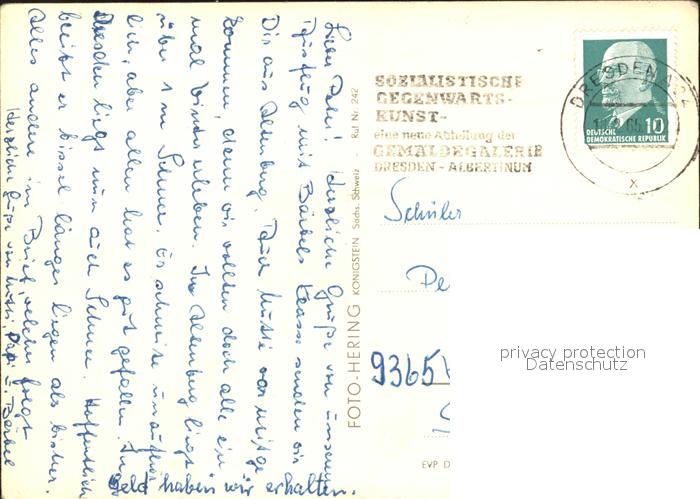 Lieber Peter! Herzliche Grüße von unserem
Ausflug mit Bärbels Klasse senden wir
Dir aus Altenberg. Auch Mutti war mitge-
kommen, denn wir wollten doch alle ein-
mal Winter erleben. In Altenberg liegt
über 1 m Schnee. Es schneite unaufhör-
lich, aber allen hat es gut gefallen. In
Dresden liegt nun auch Schnee. Hoffentlich
bleibt er bissel länger liegen als bisher.
Alles andere im Brief, welcher folgt
Herzliche Grüße von Mutti, Papi u. Bärbel
Geld haben wir erhalten.
FOTO-HERING KÖNIGSTEIN Sächs. Schweiz - Ruf Nr. 242
SOZIALISTISCHE
GEGENWARTS-
KUNST-
eine neue Abteilung der
GEMÄLDEGALERIE
DRESDEN - ALBERTINUM
DRESDEN A
65
DEUTSCHE
DEMOKRATISCHE REPUBLIK
10
Schüler
Pe
9365
EVP D
privacy protection
Datenschutz